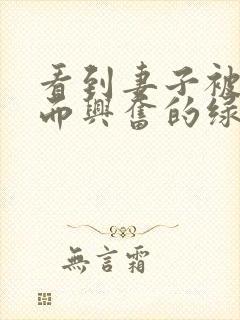 看到妻子被
而興奮的綠
無言霜